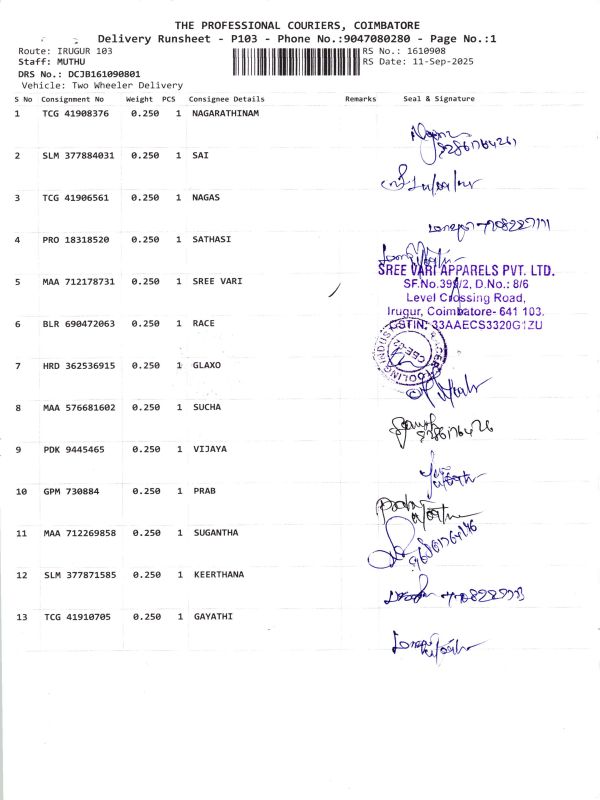 THE PROFESSIONAL COURIERS, COIMBATORE
Delivery Runsheet - P103 - Phone No.:9047080280 - Page No.:1
Route: IRUGUR 103 RS No.: 1610908
Staff: MUTHU RS Date: 11-Sep-2025
DRS No.: DCJB161090801
Vehicle: Two Wheeler Delivery
S No Consignment No Weight PCS Consignee Details Remarks Seal & Signature
1 TCG 41908376 0.250 1 NAGARATHINAM
2 SLM 377884031 0.250 1 SAI
3 TCG 41906561 0.250 1 NAGAS
4 PRO 18318520 0.250 1 SATHASI
SREE VARI APPARELS PVT. LTD.
5 MAA 712178731 0.250 1 SREE VARI
SF.No.399/2, D.No.: 8/6
Level Crossing Road,
Irugur, Coimbatore- 641 103.
6 BLR 690472063 0.250 1 RACE
GSTIN: 33AAECS3320G1ZU
7 HRD 362536915 0.250 1 GLAXO
8 MAA 576681602 0.250 1 SUCHA
9 PDK 9445465 0.250 1 VIJAYA
10 GPM 730884 0.250 1 PRAB
11 MAA 712269858 0.250 1 SUGANTHA
12 SLM 377871585 0.250 1 KEERTHANA
13 TCG 41910705 0.250 1 GAYATHI